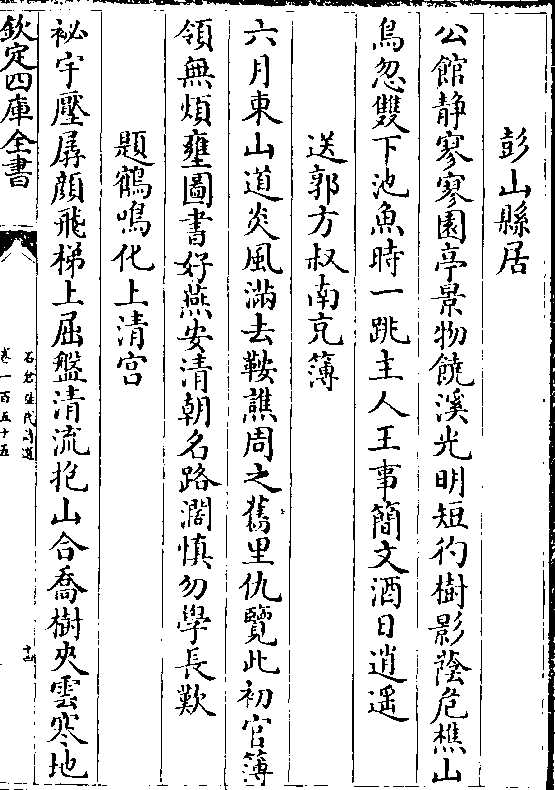 彭山縣居
公館靜寥寥園亭景物饒溪光明短彴樹影蔭危樵山
鳥忽雙下池魚時一跳主人王事簡文酒日逍遥
送郭方叔南充簿
六月東山道炎風滿去鞍譙周之舊里仇覽此初官簿
領無煩壅圖書好燕安清朝名路濶慎勿學長歎
題鶴鳴化上清宫
袐宇壓孱顔飛梯上屈盤清流抱山合喬樹夾雲寒地
欽定四庫全書
石倉歷代詩選
卷一百五十五